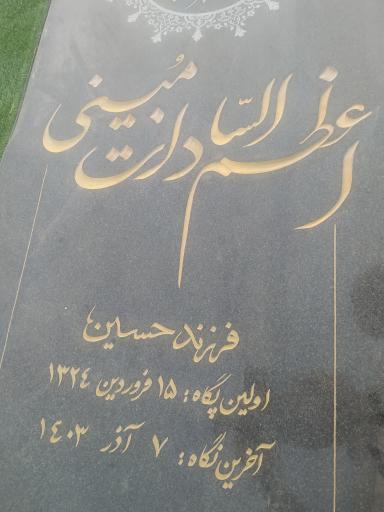 اعظم السّادات مُبینی
فرزند حسین
اولین پگاه: ۱۵ فروردین ۱۳۲۴
آخرین نگاه: ۷ آذر ۱۴۰۳